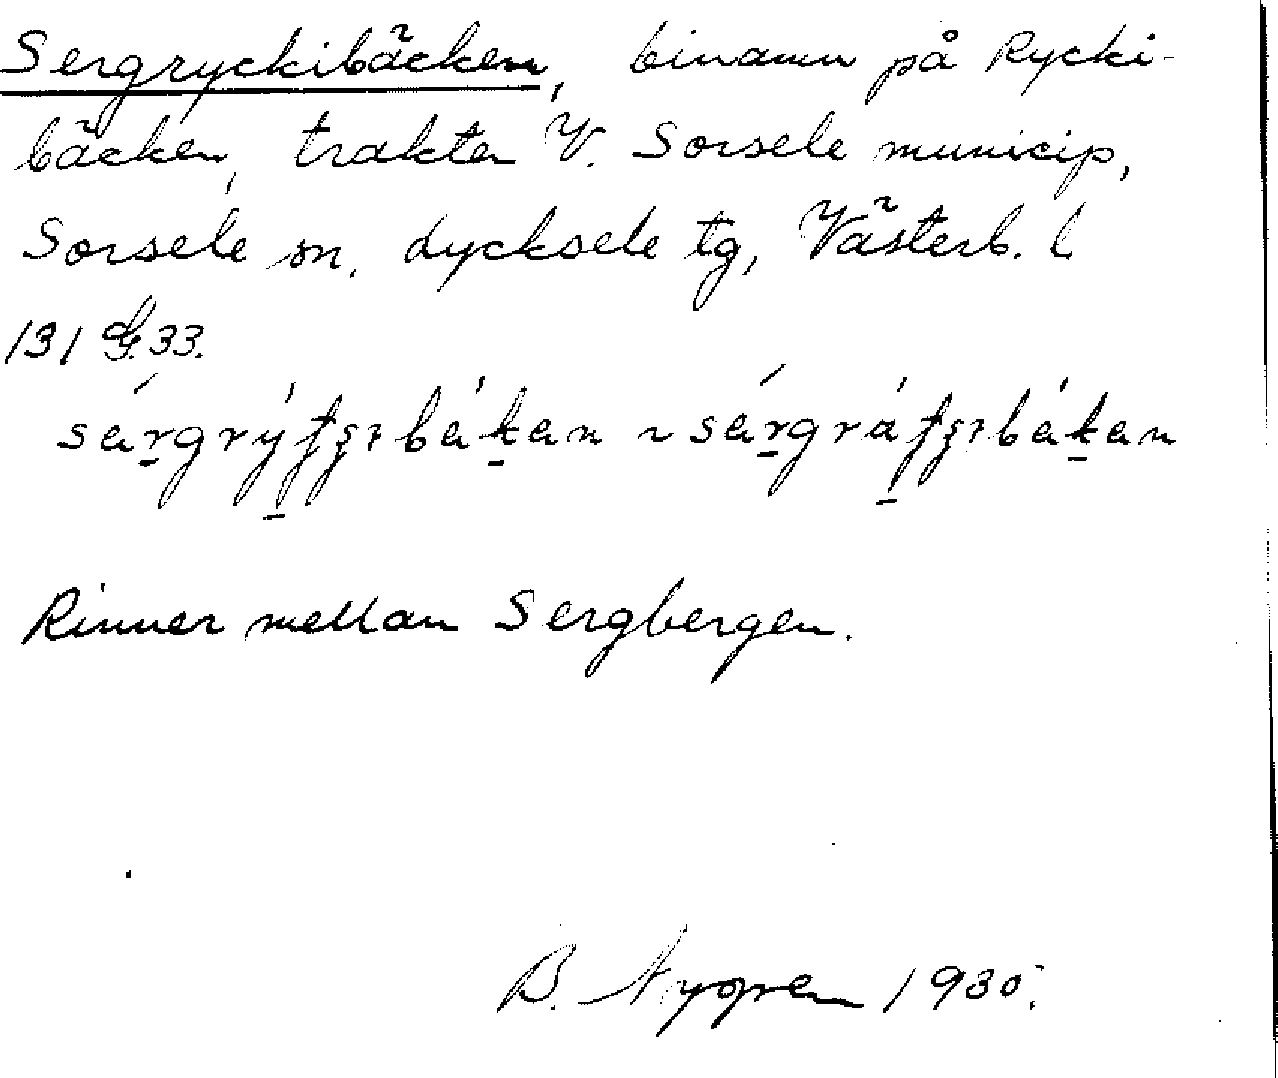 Sergryckibäcken, binamn på Rycki-
bäcken, trakten V. Sorsele municip,
Sorsele sn. Lycksele tg, Västerb. l
131 33.
Rinner mellan Sergbergen.
B. Nygren 1930.